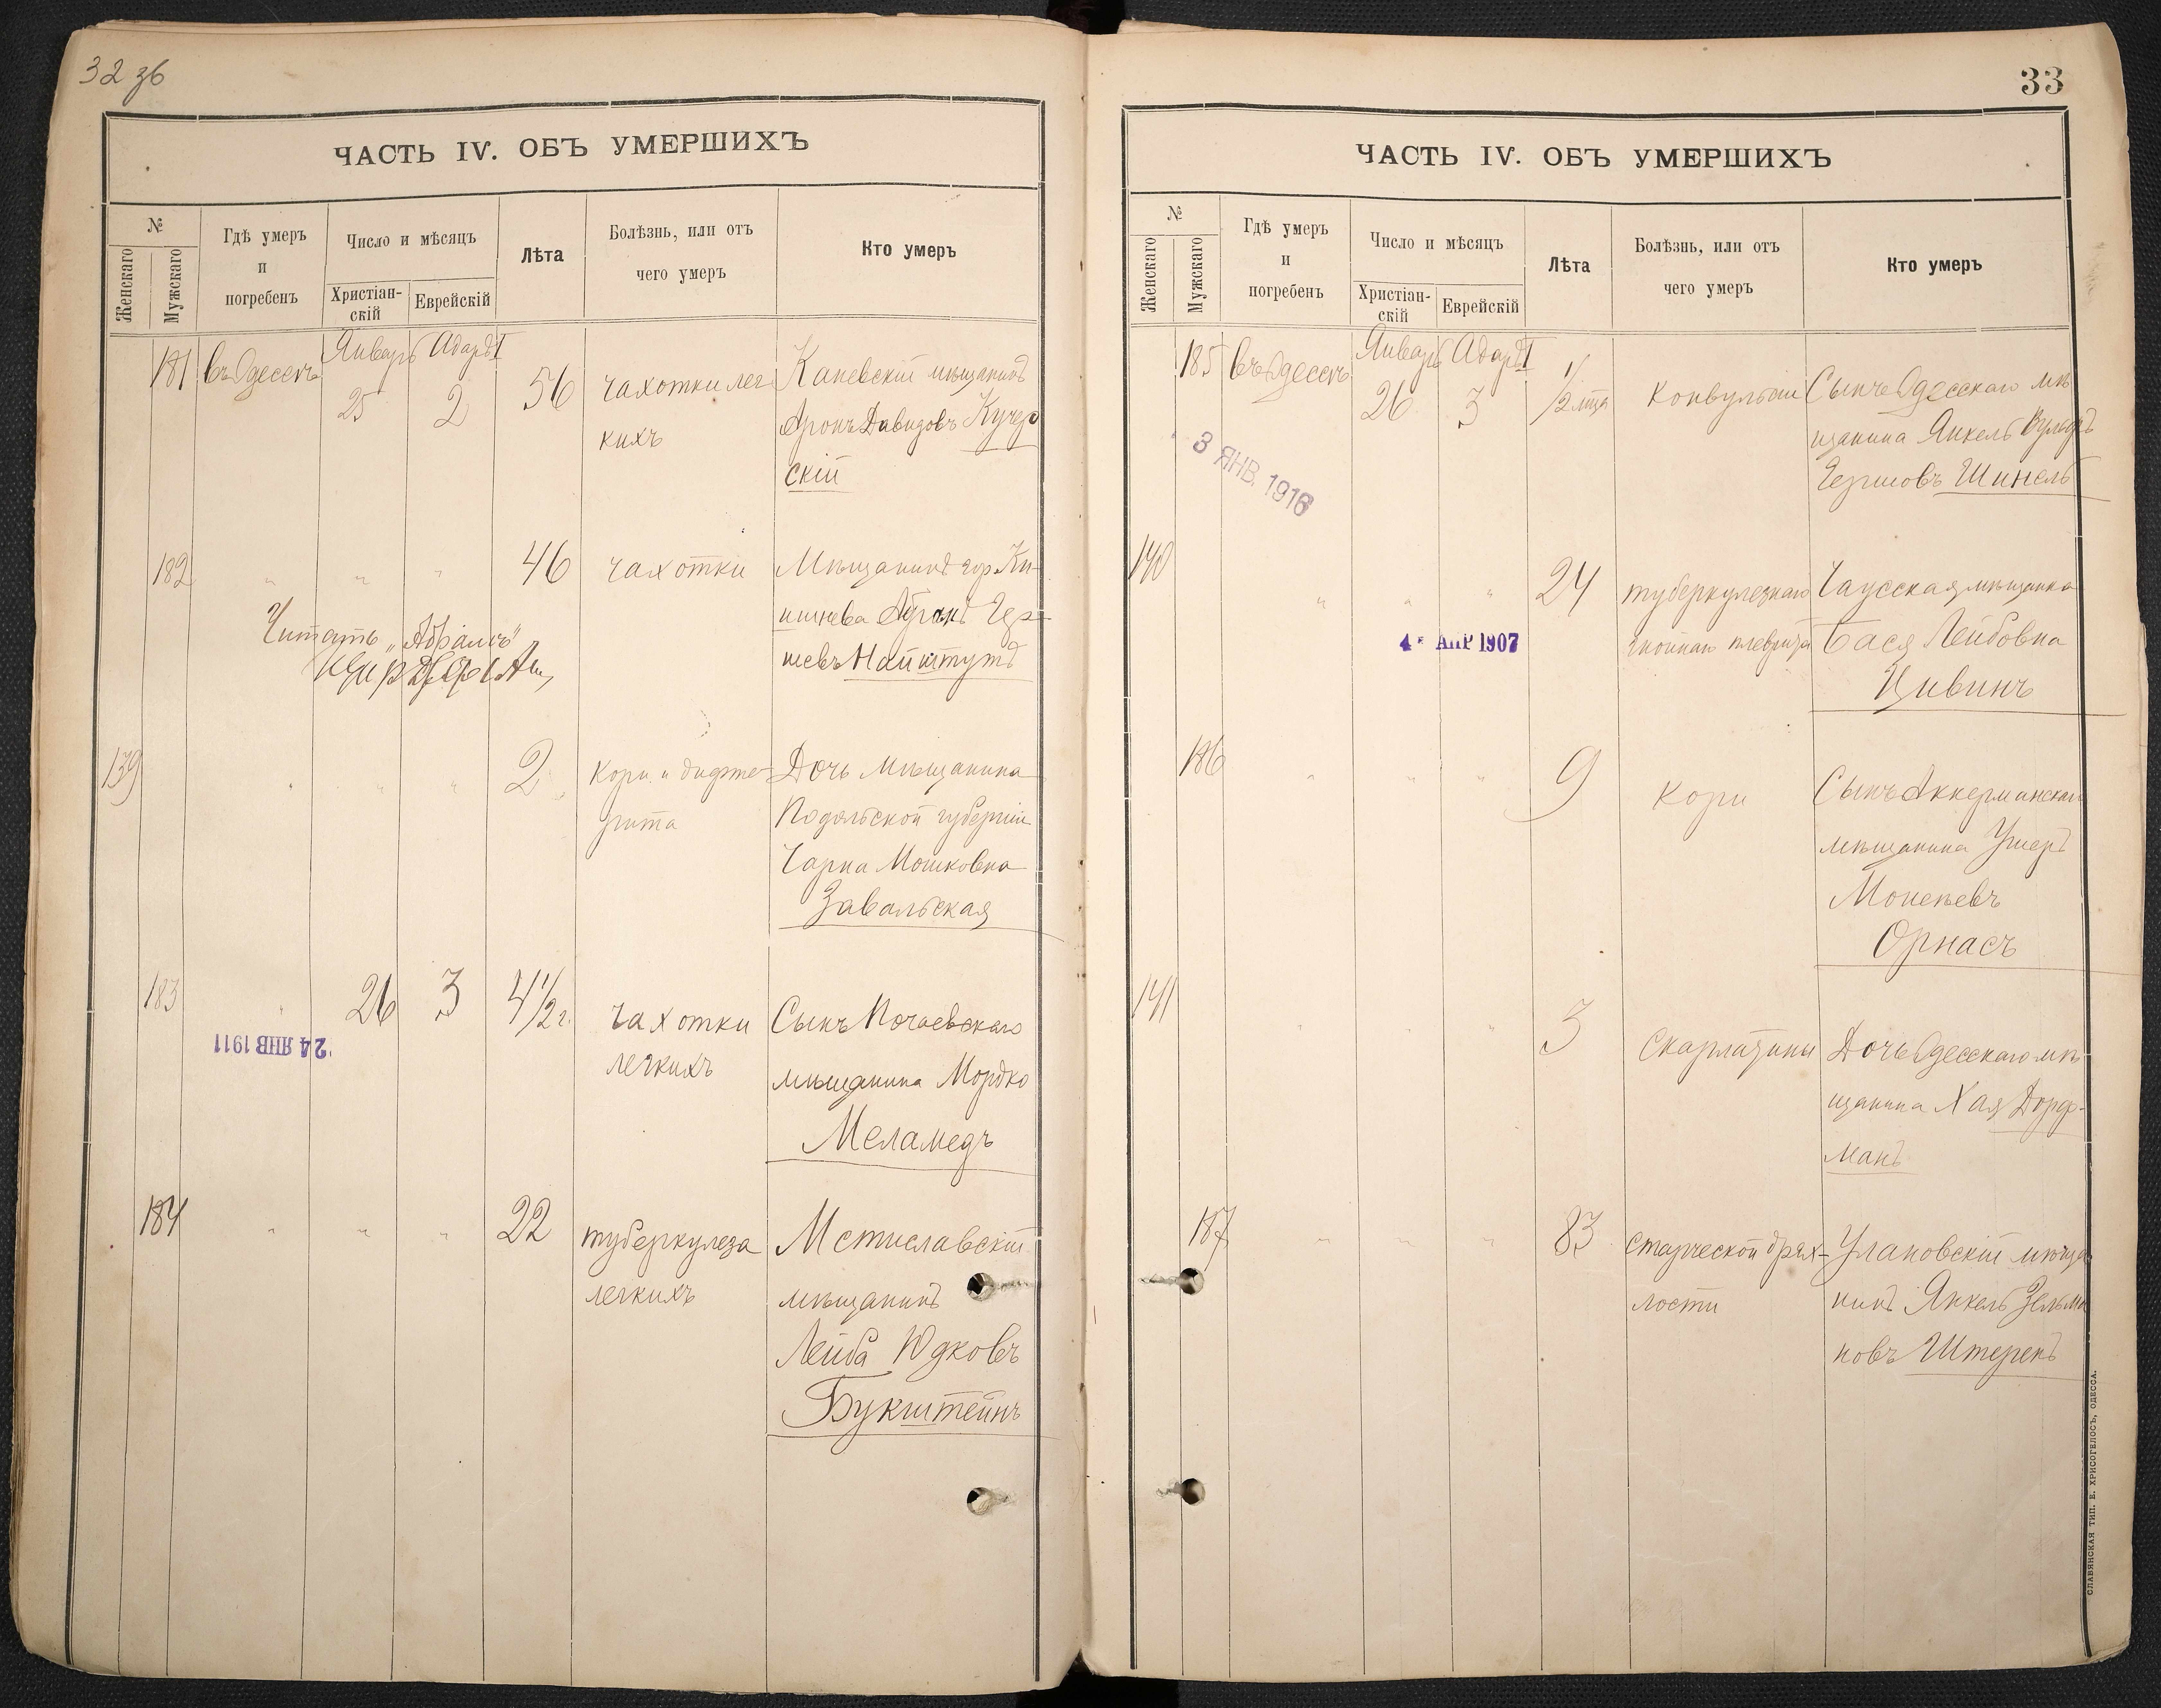 32 зв
ЧАСТЬ IV. ОБЪ УМЕРШИХЪ
№
Женскаго
Мужскаго
Гдѣ умеръ
и
погребенъ
Число и мѣсяцъ
Христіан-
скій
Еврейскій
Лѣта
Болѣзнь, или отъ
чего умеръ
Кто умеръ
181 въ Одессѣ Январь 25 Адаръ I 2 56 чахотки лег
кихъ
Каневскій мѣщанинъ
Аронъ Давидовъ Кучер
скій
182 " " " 46 чахотки
Мѣщанинъ гор. Ки-
шинева Абрамъ Гер-
шевъ Найштутъ
Читать „Абрамъ"
139 " " " 2 кори и дифте-
рита
Дочь мѣщанина
Подольской губерніи
Чарна Мошковна
Завальская
183 " 26 3 4 1/2 г. чахотки
легкихъ
Сынъ Почаевскаго
мѣщанина Мордко
Меламедъ
24 ЯНВ 1911
184 " " " 22 туберкулеза
легкихъ
Мстиславскій
мѣщанинъ
Лейба Юдковъ
Букштейнъ
33
ЧАСТЬ IV. ОБЪ УМЕРШИХЪ
№
Женскаго
Мужскаго
Гдѣ умеръ
и
погребенъ
Число и мѣсяцъ
Христіан-
скій
Еврейскій
Лѣта
Болѣзнь, или отъ
чего умеръ
Кто умеръ
185 въ Одессѣ Январь 26 Адаръ I 3 1/2 мца конвульсіи
Сынъ Одесскаго мѣ
щанина Янкель
Гершовъ Шинель
3 ЯНВ. 1916
140 " " " 24 туберкулезнаго
гнойнаго плеврита
Чаусская мѣщанка
Бася Лейбовна
Цивинъ
4 АПР 1907
186 " " " 9 кори
Сынъ Аккерманскаго
мѣщанина Ушеръ
Орнасъ
141 " " " 3 скарлатины
Дочь Одесскаго мѣ
щанина Хая Дорф-
манъ
187 " " " 83 старческой дрях-
лости
Улановскій мѣща
нинъ Янкель Зельма
новъ Штеренъ
СЛАВЯНСКАЯ ТИП. Е. ХРИСОГЕЛОСЪ, ОДЕССА.